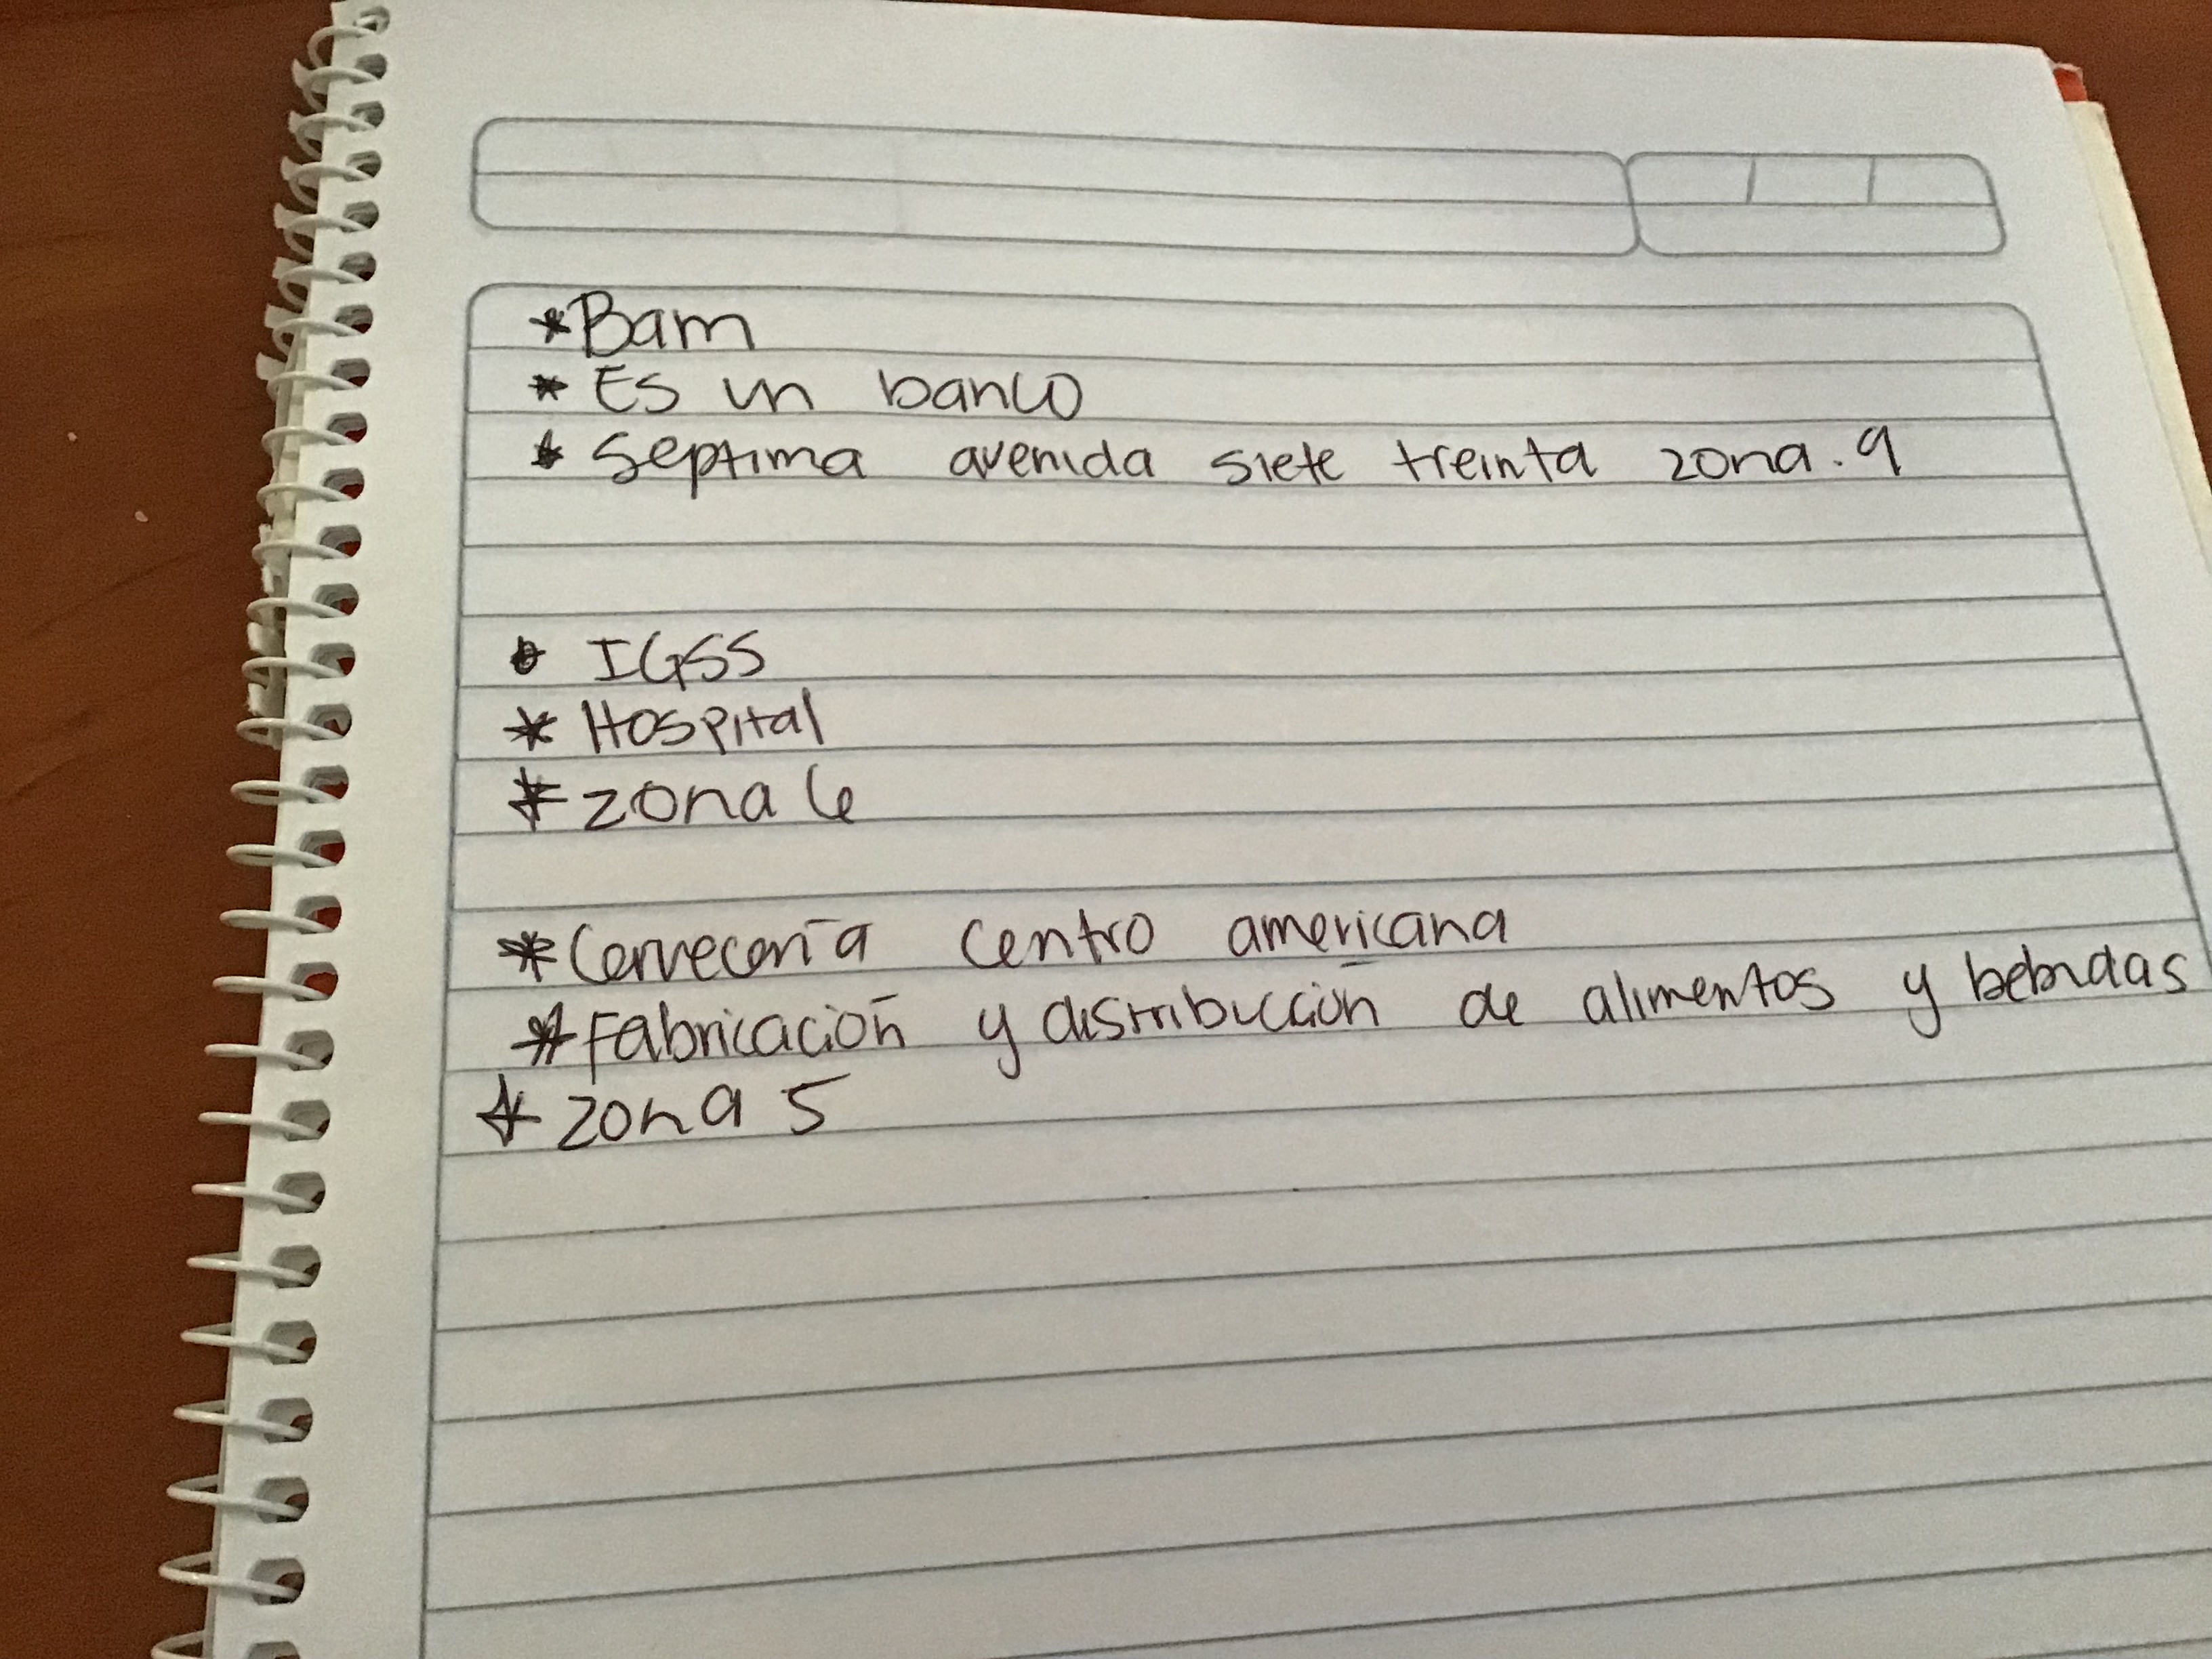 * Bam
* Es un banco
* Septima avenida siete treinta zona. 9
* IGSS
* Hospital
* zona 6
* Cervecería Centro americana
* Fabricación y distribucción de alimentos y bebidas
* zona 5